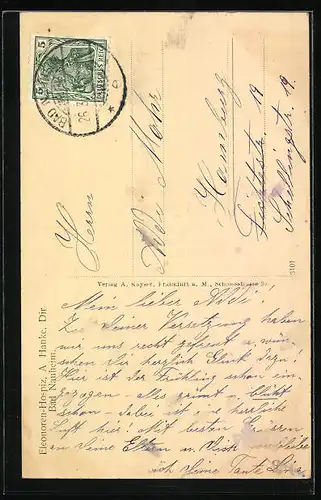 BAD N
26.3
e
5
DEUTSCHES REICH
Herrn
Mohr
Hamburg
19
Schellingstr. 19.
Verlag A. Sayer, Frankfurt a. M.,
3101
Eleonoren-Hospiz, A. Hanke, Dir.
Bad Nauheim.
Mein lieber
Zu Deiner Versetzung haben
wir uns recht gefreut u. wün-
schen Dir herzlich Glück dazu!
Hier ist der Frühling schon ein-
gezogen - Alles grünt u. blüht
schon - dabei ist eine herrliche
Luft hier! Mit besten Grüssen
an Deine Eltern u. Dich
ich Deine Tante